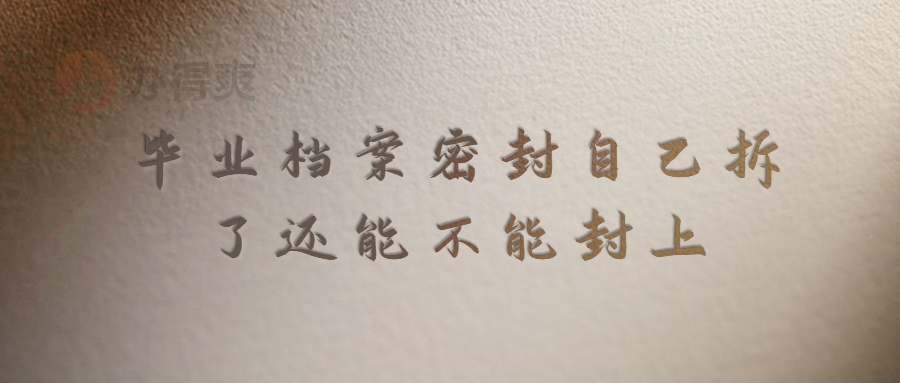 办得爽
毕业档案密封自己拆
了还能不能封上